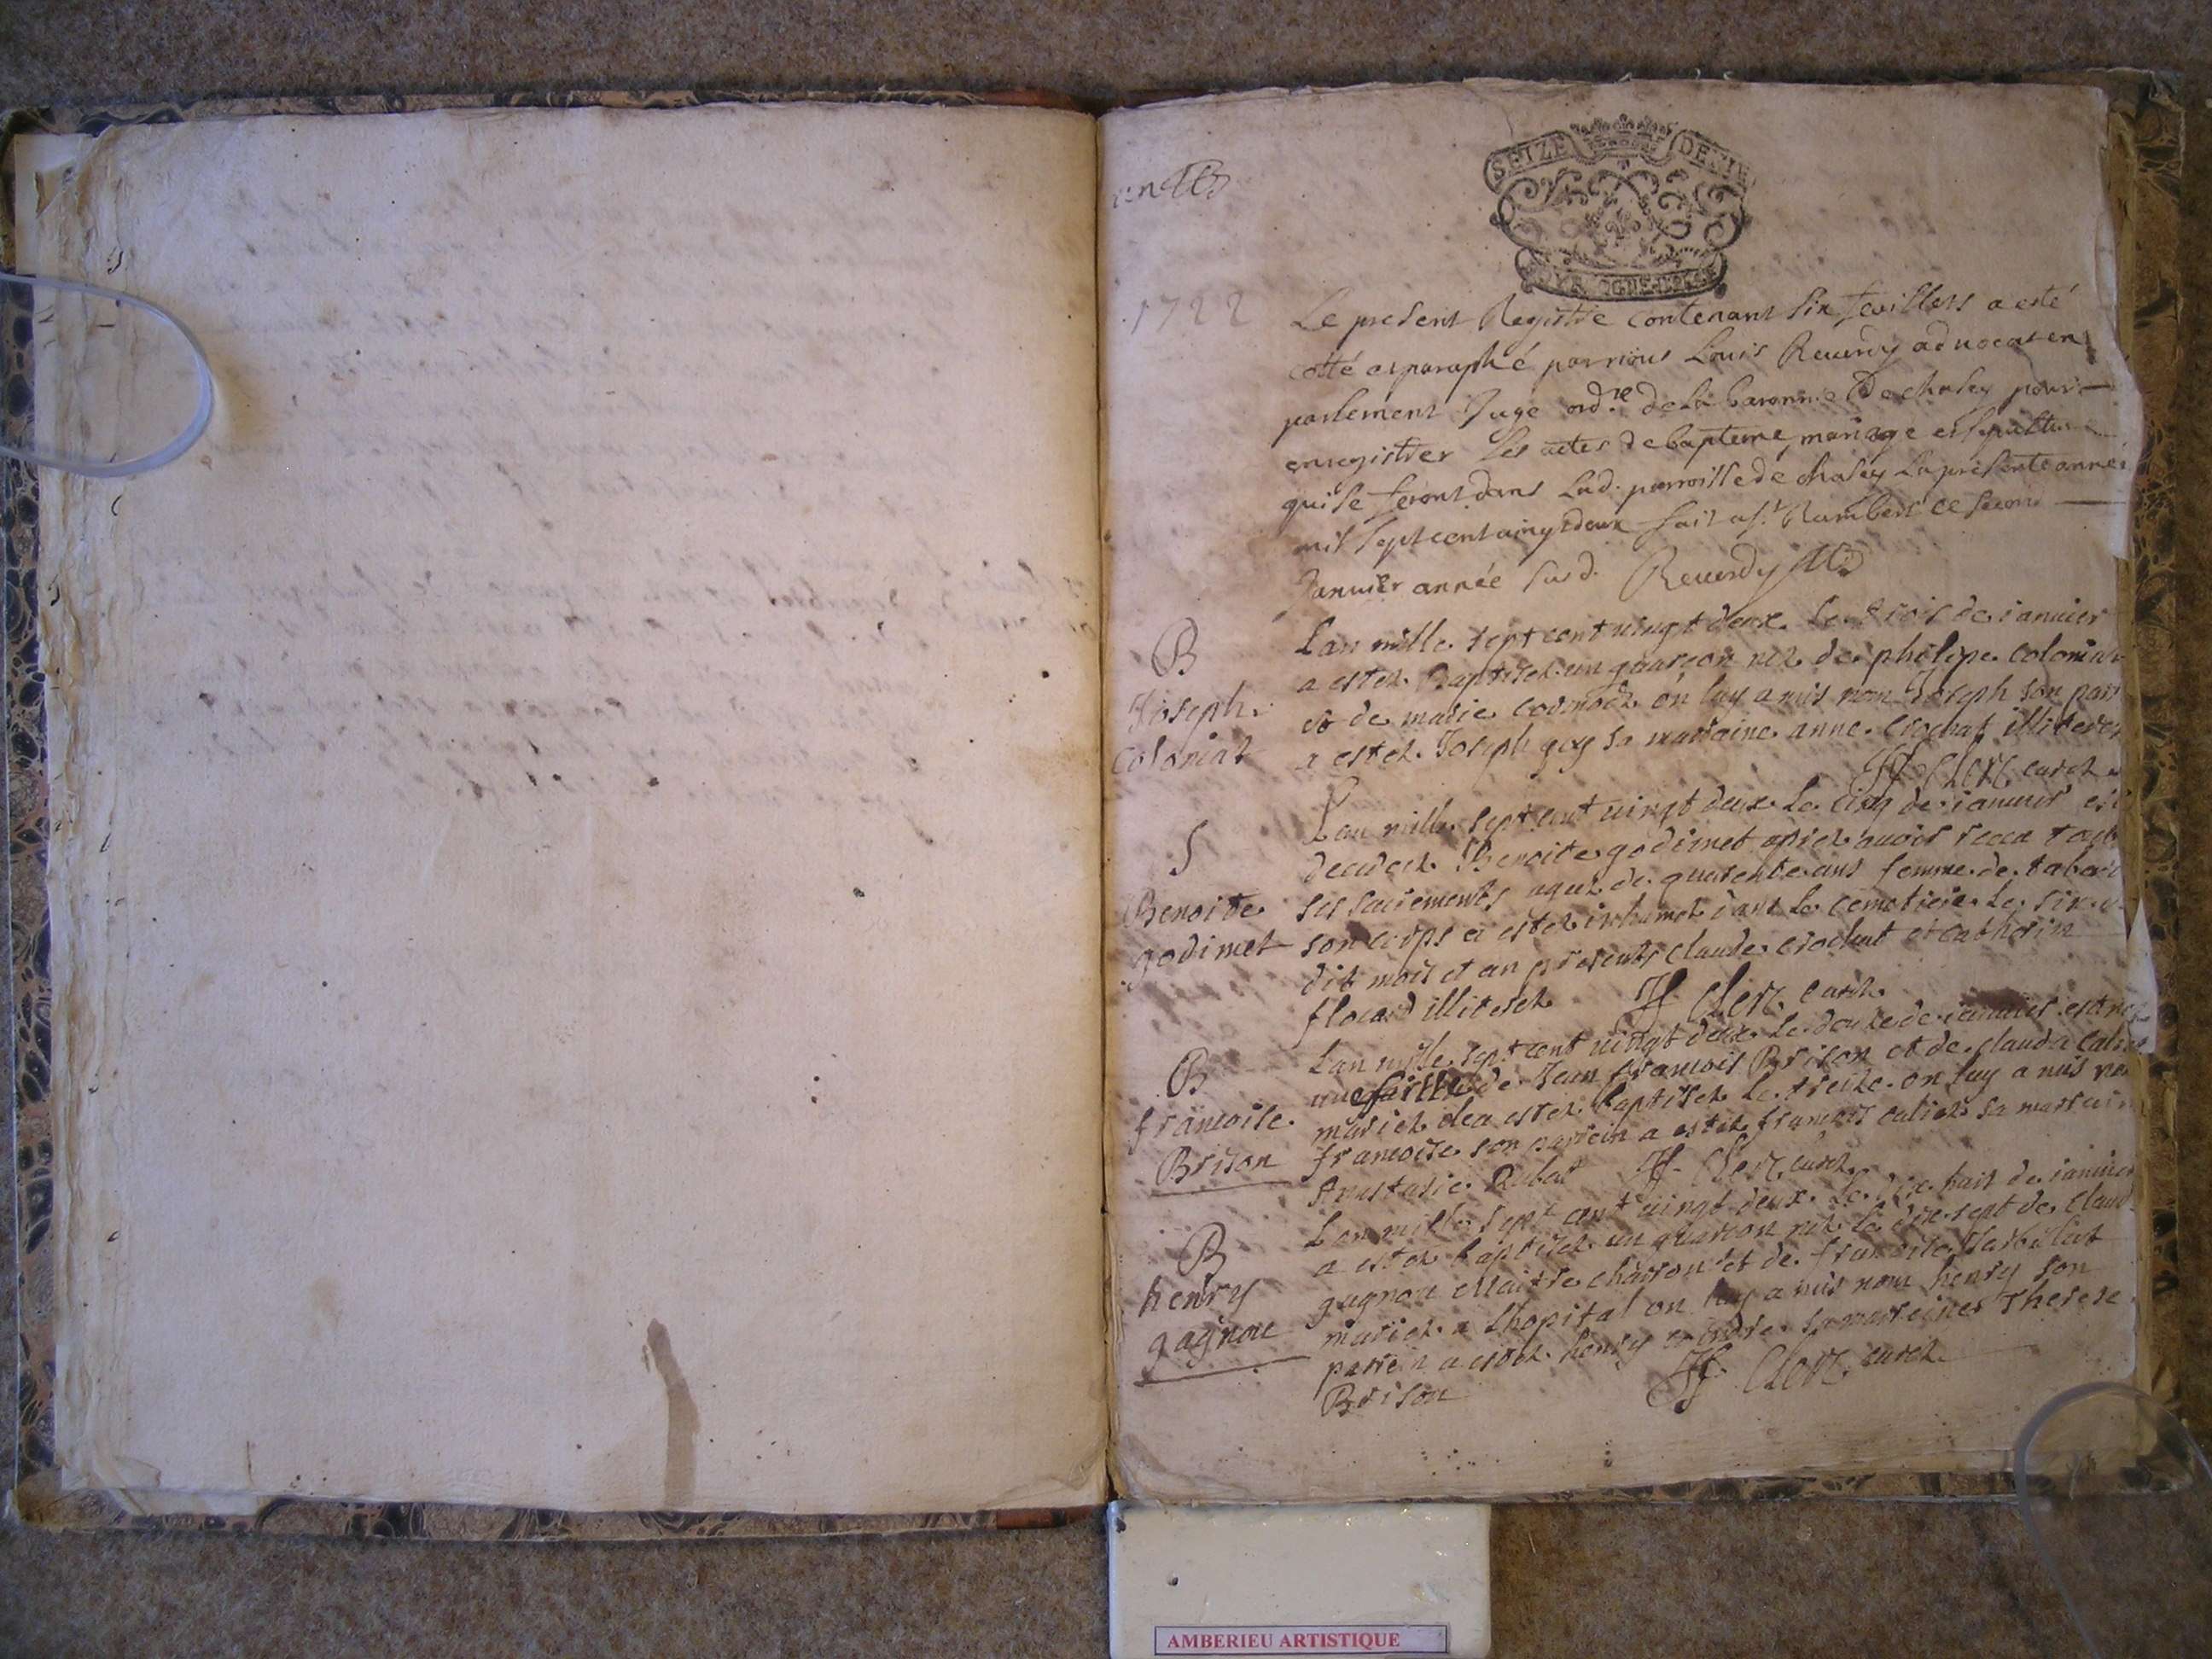 SEIZE DENIE
1722
Le present Registre contenant six feuillets a esté
cotté et paraphé par nous Louis Reverdy advocat en
parlement Juge ord.re de la baronnie de chasey pour
enregistrer les actes de bapteme, mariage et sepulture
qui se feront dans lad. parroisse de chasey la presente année
mil sept cent vingt deux fait a s.t Rambert ce second
Janvier année susd. Reverdy
B
Joseph
coloniat
Lan mille sept cent vingt deux le trois de ianvier
a estez Baptisez un guarçon nez de philipe coloniat
et de marie on luy a mis nom Joseph son par
a estez Joseph guy sa marraine anne crochat illiterez
Clerc curez
S
Benoite
godimet
Lan mille sept cent vingt deux le cinq de ianvier est
decedez Benoite godimet aprez avoir receu tous
ses sacrements agez de quarente ans femme de
son corps a estez inhumez dans le cemetiere le six
dit mois et an presents claude crochat et catherin
flocard illiterez Clerc curez
B
francoise
Brison
Lan mille sept cent vingt deux le douze de ianvier est nez
une fille de Jean francois Brison et de clauda
mariez elle a estez baptisez le treize on luy a mis nom
francoise son parrein a estez francois sa marrain
Anastasie Rubat Clerc curez
B
henry
gagnou
Lan mille sept cent vingt deux le dix huit de ianvier
a estez baptisez un guarcon nez le dix sept de claud
gagnou Maitre charron et de francoise
mariez a lhopital on luy a mis nom henry son
parrein a estez henry sa marreine Therese
Brison Clerc curez
AMBERIEU ARTISTIQUE